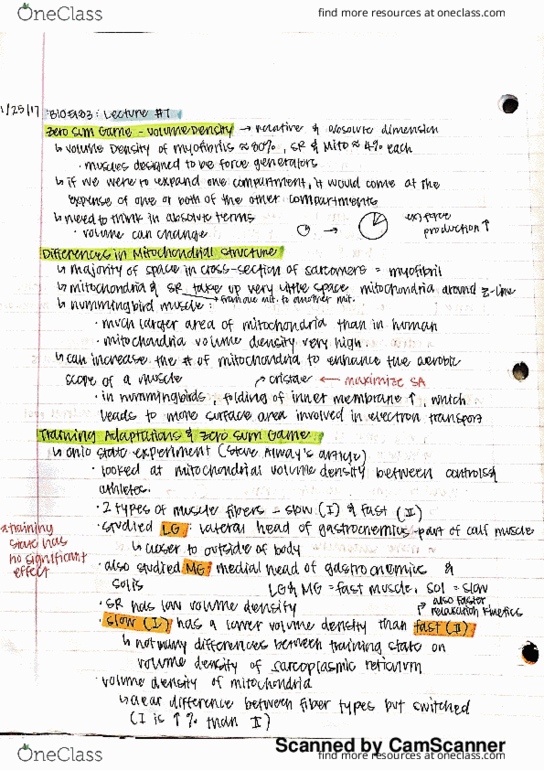 OneClass
find more resources at oneclass.com
1/25/17 BIO E103: Lecture #7
Zero Sum Game - Volume Density → relative & absolute dimension
↳ volume density of myofibrils ≈ 80%, SR & Mito ≈ 4% each
· muscles designed to be force generators
↳ if we were to expand one compartment, it would come at the
expense of one or both of the other compartments
↳ need to think in absolute terms
· volume can change
→
ex) force
production ↑
Differences in Mitochondrial Structure
↳ majority of space in cross-section of sarcomers = myofibril
↳ mitochondria & SR take up very little space mitochondria around z-line
→ from one mit. to another mit.
↳ hummingbird muscle:
· much larger area of mitochondria than in human
· mitochondria volume density very high
↳ can increase the # of mitochondria to enhance the aerobic
scope of a muscle
cristae ← maximize SA
· in hummingbirds, folding of inner membrane ↑, which
leads to more surface area involved in electron transport
Training Adaptations & Zero Sum Game
↳ Ohio State experiment (Steve Alway's article)
· looked at mitochondrial volume density between controls &
athletes.
· 2 types of muscle fibers - slow (I) & fast (II)
· studied LG: lateral head of gastrocnemius - part of calf muscle
↳ closer to outside of body
· also studied MG: medial head of gastrocnemius &
solis
LG & MG = fast muscle, SOL = slow
· SR has low volume density
↱ also faster
relaxation kinetics
· slow (I) has a lower volume density than fast (II)
↳ not many differences between training state on
volume density of sarcoplasmic reticulum
training
state has
no significant
effect
· volume density of mitochondria
↳ clear difference between fiber types but switched
(I is ↑ % than II)
Scanned by CamScanner
OneClass
find more resources at oneclass.com